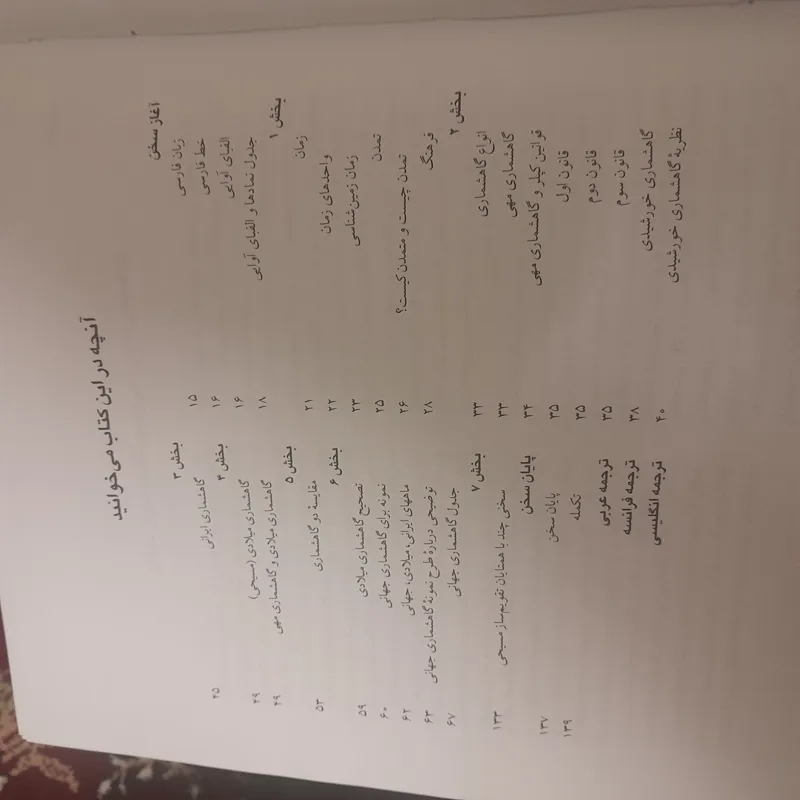 آنچه در این کتاب می‌خوانید
آغاز سخن
زبان فارسی ۱۵
خط فارسی ۱۶
الفبای آوایی ۱۶
جدول نمادها و الفبای آوایی ۱۸
بخش ۱
زمان ۲۱
واحدهای زمان ۲۲
زمان زمین‌شناسی ۲۳
تمدن ۲۵
تمدن چیست و متمدن کیست؟ ۲۶
فرهنگ ۲۸
بخش ۲
انواع گاهشماری ۳۳
گاهشماری مهی ۳۳
قوانین کپلر و گاهشماری مهی ۳۴
قانون اول ۳۵
قانون دوم ۳۵
قانون سوم ۳۵
گاهشماری خورشیدی ۳۸
نظریهٔ گاهشماری خورشیدی ۴۰
بخش ۳
گاهشماری ایرانی ۴۵
بخش ۴
گاهشماری میلادی (مسیحی) ۴۹
گاهشماری میلادی و گاهشماری مهی ۴۹
بخش ۵
مقایسهٔ دو گاهشماری ۵۳
بخش ۶
تصحیح گاهشماری میلادی ۵۹
نمونه برای گاهشماری جهانی ۶۰
ماههای ایرانی، میلادی، جهانی ۶۲
توضیحی دربارهٔ طرح نمونهٔ گاهشماری جهانی ۶۳
جدول گاهشماری جهانی ۶۷
بخش ۷
سخنی چند با همتایان تقویم‌ساز مسیحی ۱۳۳
پایان سخن
پایان سخن ۱۳۷
تکمله ۱۳۹
ترجمه عربی
ترجمه فرانسه
ترجمه انگلیسی